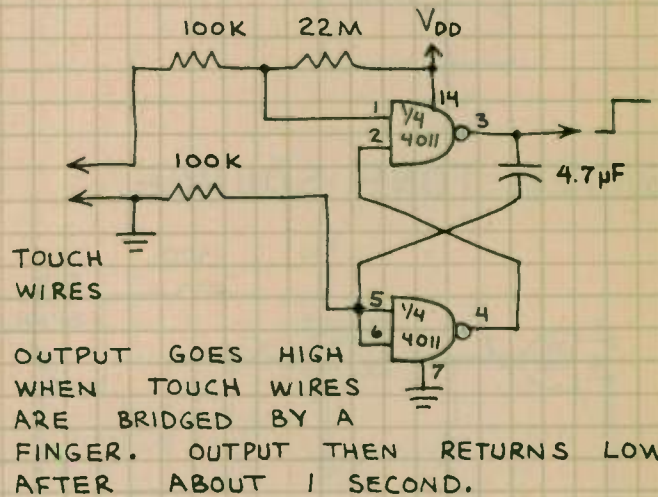 100K 22M VDD
14
1 1/4 3
2 4011
100K 4.7µF
TOUCH
WIRES
5 1/4 4
6 4011
7
OUTPUT GOES HIGH
WHEN TOUCH WIRES
ARE BRIDGED BY A
FINGER. OUTPUT THEN RETURNS LOW
AFTER ABOUT 1 SECOND.